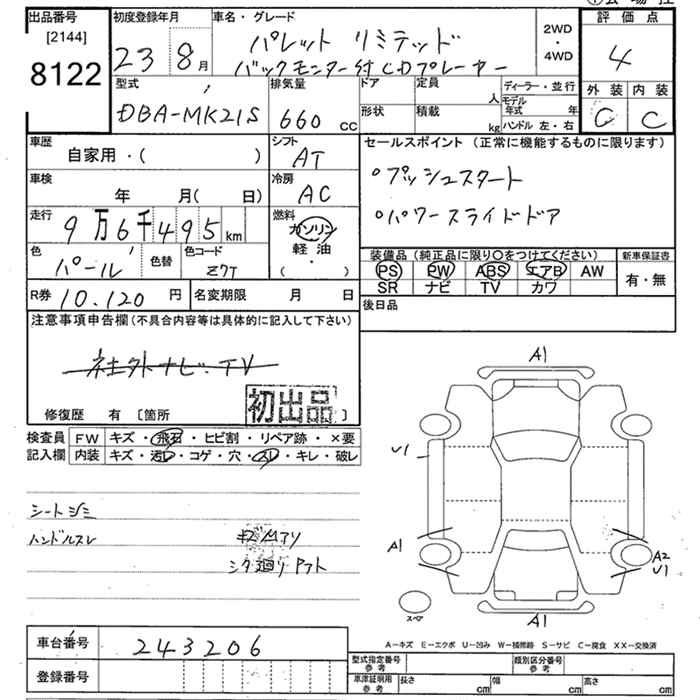 出品番号
[2144]
8122
初度登録年月
23 8月
車名・グレード
パレット リミテッド
バックモンター付CDプレーヤー
2WD
・
4WD
評価点
4
外装 内装
C C
型式
DBA-MK21S
排気量
660 cc
ドア
定員
人
形状
積載
kg
ディーラー・並行
モデル年式 年
ハンドル 左・右
車歴
自家用・( )
シフト
AT
車検
年 月( 日)
冷房
AC
走行
9万6千495km
燃料
ガソリン
軽油
・
( )
色
パール
色替
色コード
Z7T
R券 10.120 円
名変期限 月 日
セールスポイント (正常に機能するものに限ります)
○プッシュスタート
○パワースライドドア
装備品 (純正品に限り○をつけてください)
PS PW ABS エアB AW
SR ナビ TV カワ
新車保証書
有・無
後日品
注意事項申告欄(不具合内容等は具体的に記入して下さい)
社外ナビ.TV
初出品
修復歴 有 〔箇所 〕
検査員記入欄
FW キズ・飛石・ヒビ割・リペア跡・×要
内装 キズ・汚レ・コゲ・穴・スレ・キレ・破レ
シートシミ
ハンドルスレ
キズ凹アリ
シタ廻りサフト
A1
U1
A1
A2
U1
A1
スペア
A-キズ E-エクボ U-凹み W-補修跡 S-サビ C-腐食 XX-交換済
車台番号
243206
登録番号
型式指定番号参考
類別区分番号参考
車庫証明用参考
長さ cm
幅 cm
高さ cm